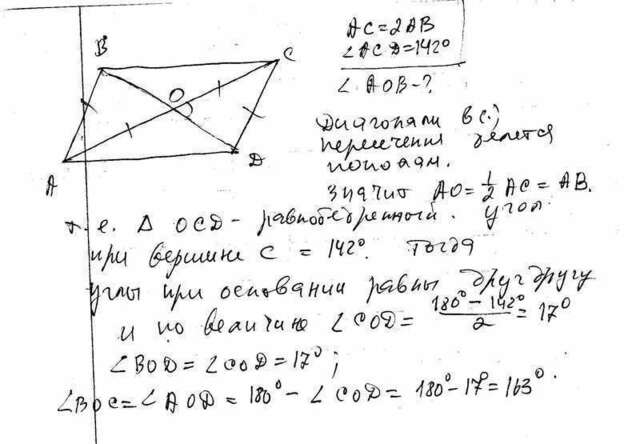 AC=2AB
∠ACD=142°
∠AOB-?
B
C
O
A
D
Диагонали в (·)
пересечения делятся
пополам.
значит AO=1/2 AC=AB.
т.е. Δ OCD - равнобедренный. угол
при вершине C = 142°. Тогда
углы при основании равны друг другу
и по величине ∠COD= (180°-142°)/2 = 17°
∠BOD=∠COD=17°;
∠BOC=∠AOD=180°-∠COD=180°-17°=163°.